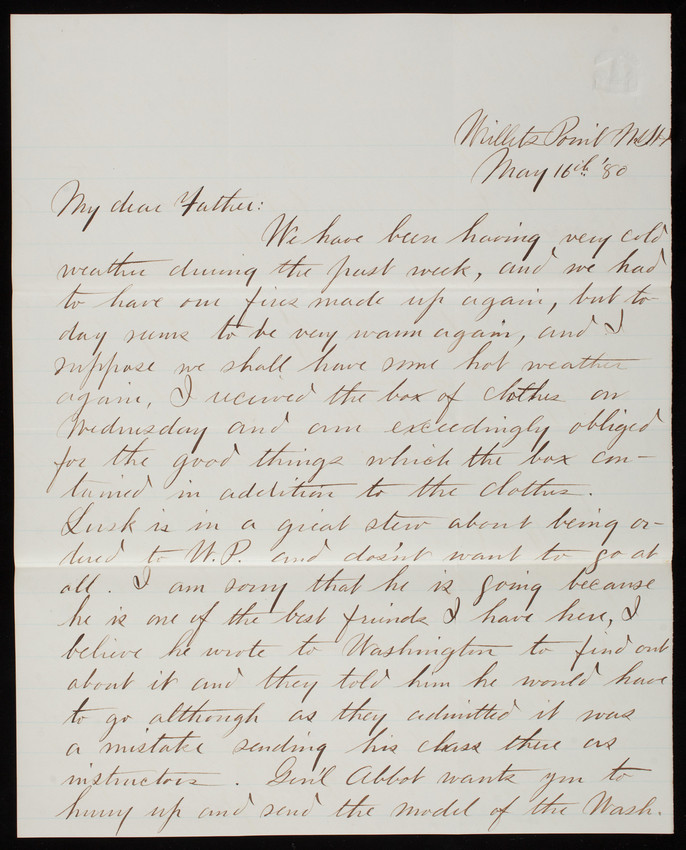 Willets Point N.Y.H.
May 16th '80
My dear Father:
We have been having very cold
weather during the past week, and we had
to have our fires made up again, but to-
day seems to be very warm again, and I
suppose we shall have some hot weather
again. I received the box of clothes on
Wednesday and am exceedingly obliged
for the good things which the box con-
tained in addition to the clothes.
Lusk is in a great stew about being or-
dered to W.P. and doesn't want to go at
all. I am sorry that he is going because
he is one of the best friends I have here, I
believe he wrote to Washington to find out
about it and they told him he would have
to go although as they admitted it was
a mistake sending his class there as
instructors. Gen'l Abbot wants you to
hurry up and send the model of the Wash.